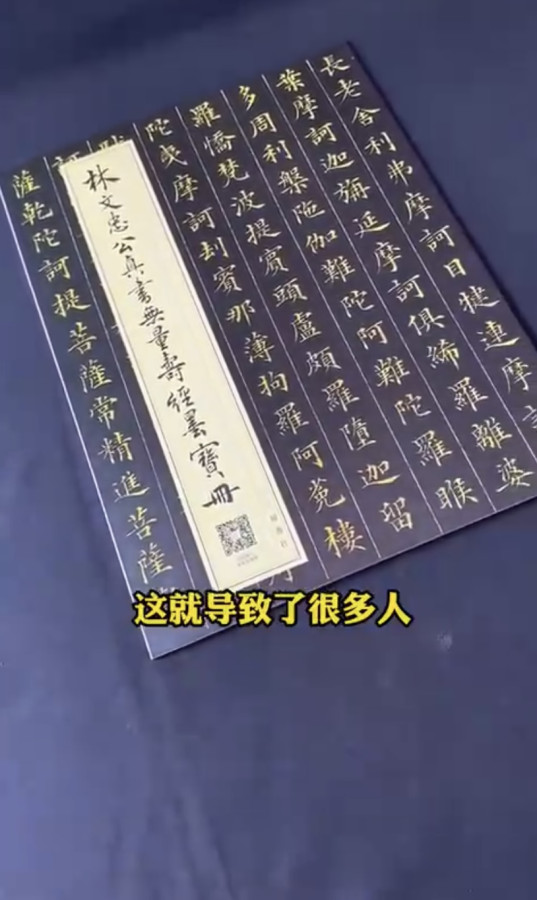 長老舍利弗摩訶目揵連摩
葉摩訶迦旃延摩訶俱絺羅離婆
多周利槃陁伽難陀阿難陀羅睺
羅憍梵波提賓頭盧頗羅墮迦留
陀夷摩訶刦賓那薄拘羅阿㝹樓
林文忠公真書無量壽經墨寶冊
薩乾陀訶提菩薩常精進菩薩
这就导致了很多人